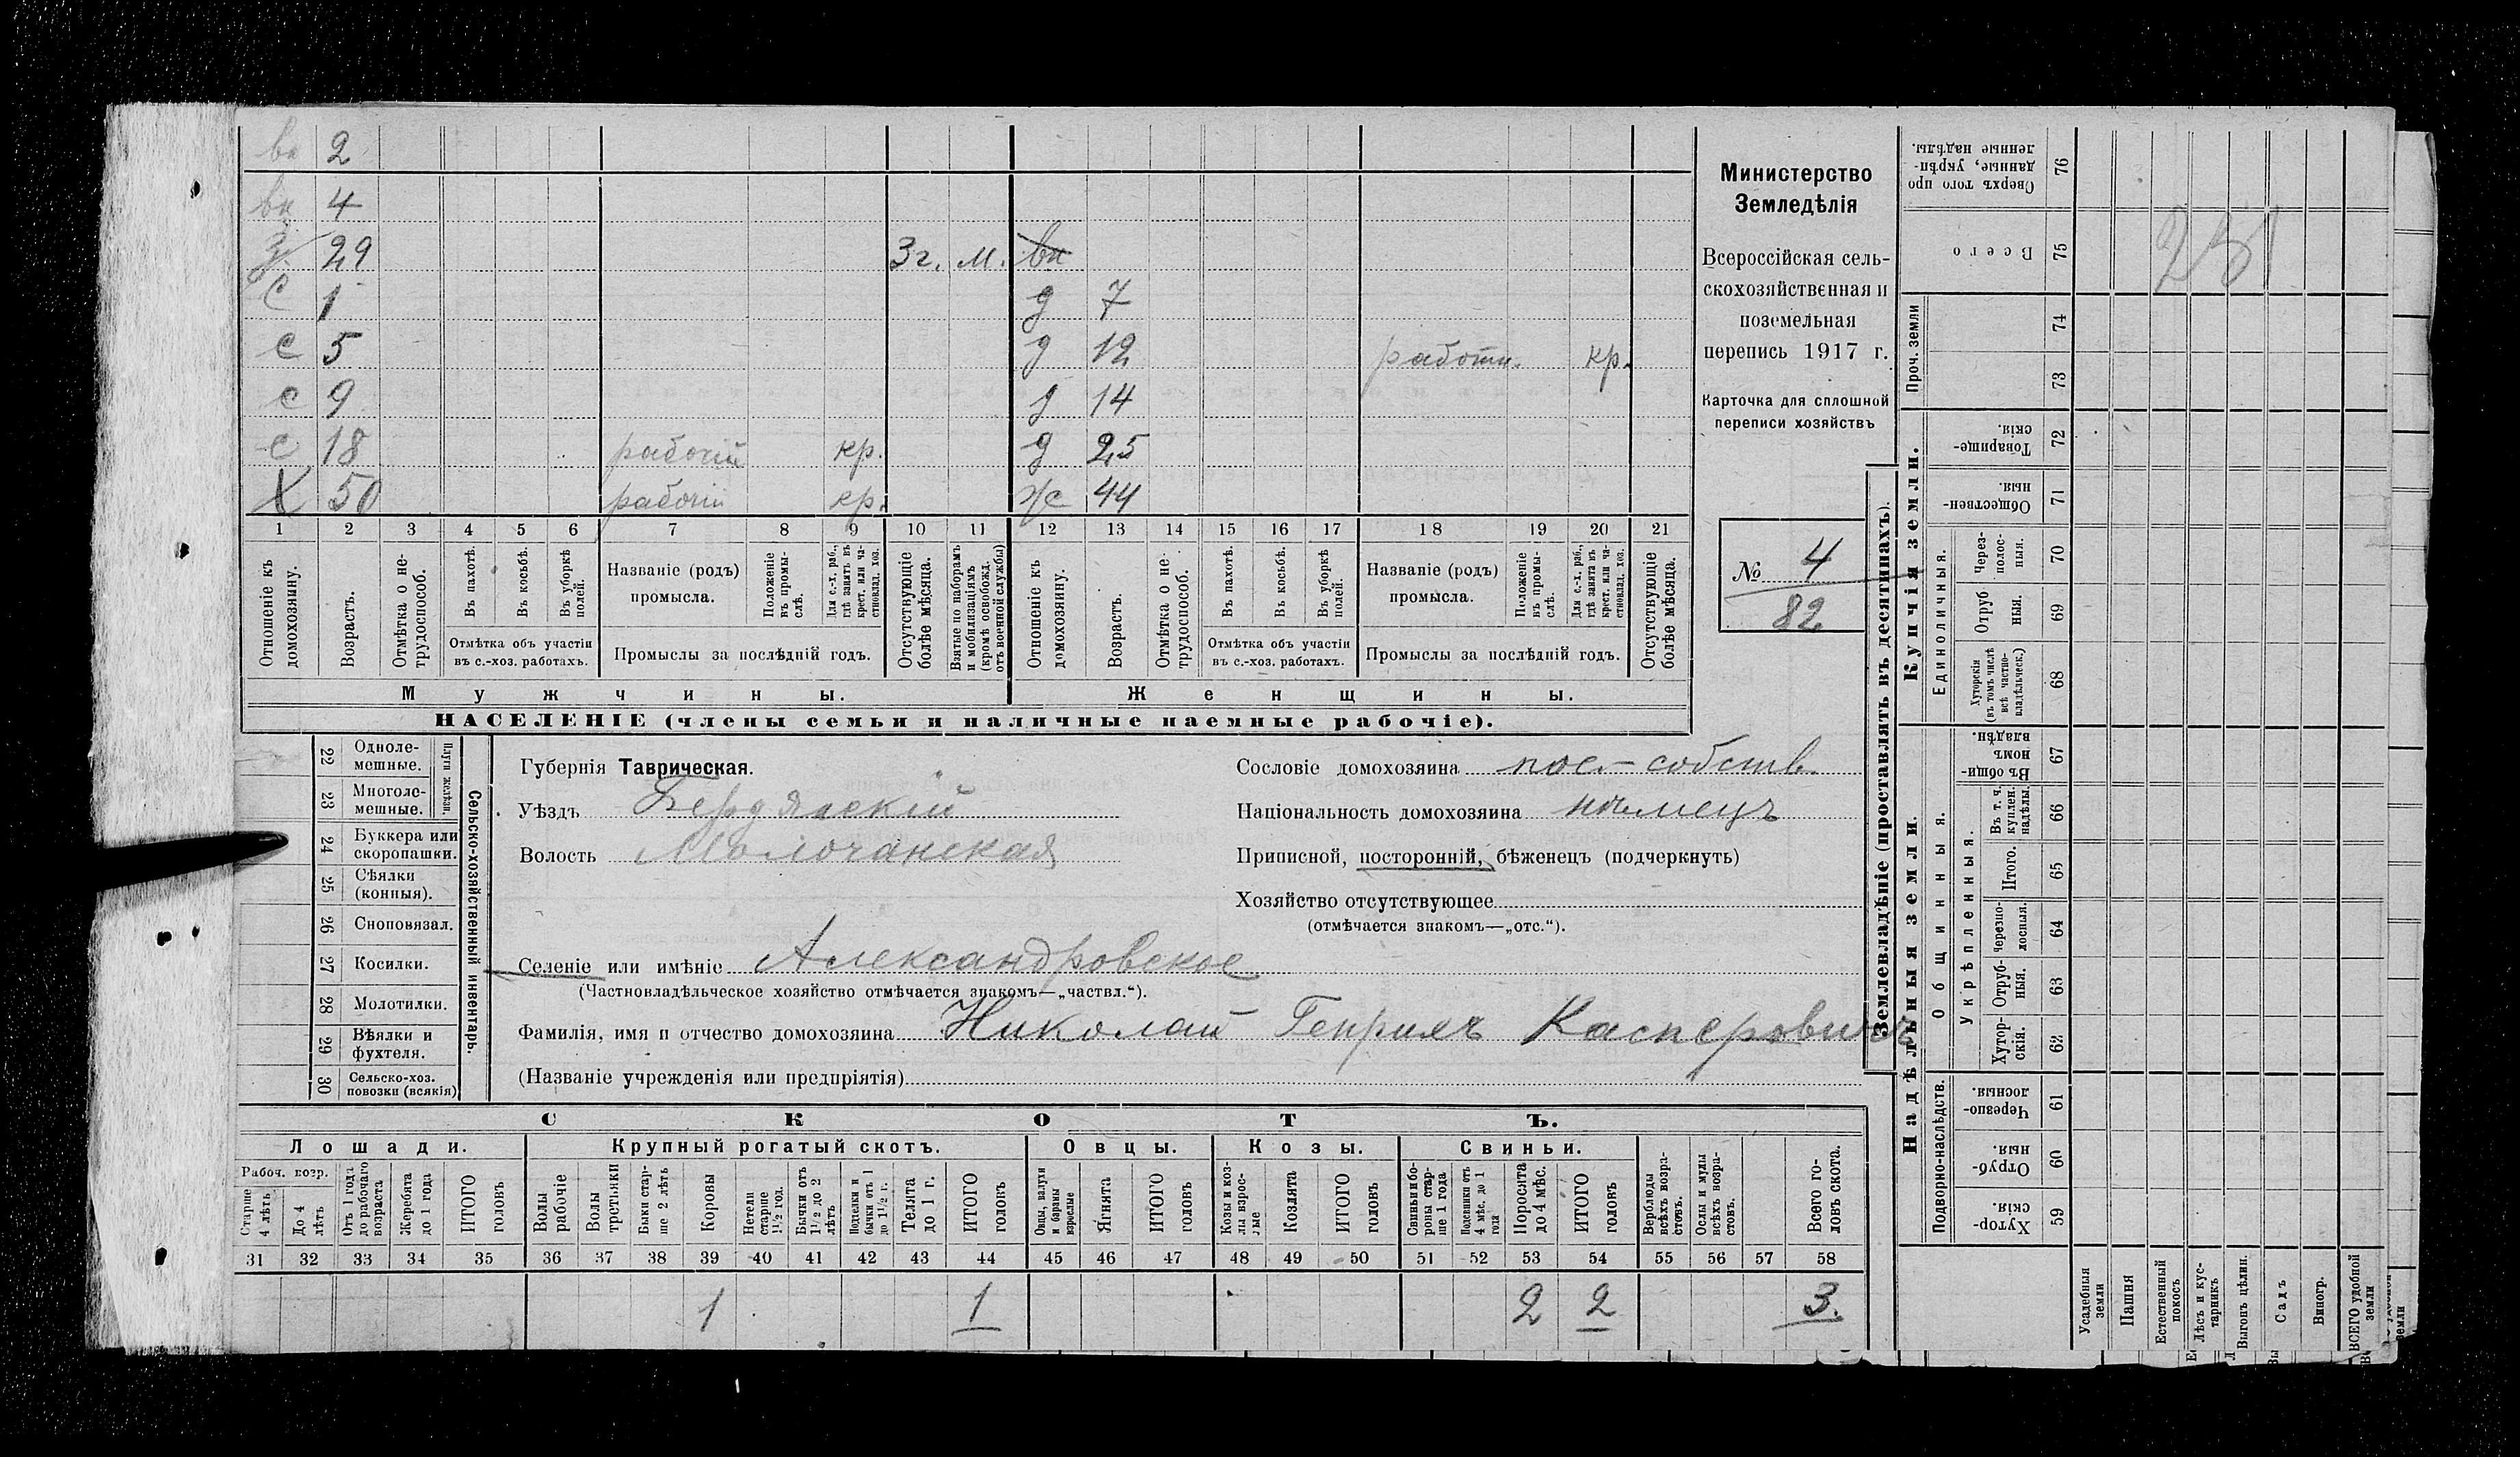 вн 2
вн 4
з 29 3 г. м. вн
с 1 д 7
с 5 д 12 работн. кр.
с 9 д 14
с 18 рабочій кр. д 25
Х 50 рабочій кр. ж 44
1 2 3 4 5 6 7 8 9 10 11 12 13 14 15 16 17 18 19 20 21
Отношеніе къ домохозяину.
Возрастъ.
Отмѣтка о не-трудоспособ.
Въ пахотѣ.
Въ косьбѣ.
Въ уборкѣ полей.
Отмѣтка объ участіи
въ с.-хоз. работахъ.
Названіе (родъ)
промысла.
Положеніе въ промы-слѣ.
Для с.-х. раб., гдѣ занятъ въ крест. или ча-стновлад. хоз.
Промыслы за послѣдній годъ.
Отсутствующіе болѣе мѣсяца.
Взятые по наборамъ и мобилизаціямъ (кромѣ освобожд. отъ военной службы)
Отношеніе къ домохозяину.
Возрастъ.
Отмѣтка о не-трудоспособ.
Въ пахотѣ.
Въ косьбѣ.
Въ уборкѣ полей.
Отмѣтка объ участіи
въ с.-хоз. работахъ.
Названіе (родъ)
промысла.
Положеніе въ промы-слѣ.
Для с.-х. раб., гдѣ занята въ крест. или ча-стновлад. хоз.
Промыслы за послѣдній годъ.
Отсутствующіе болѣе мѣсяца.
Мужчины. Женщины.
НАСЕЛЕНІЕ (члены семьи и наличные наемные рабочіе).
Министерство
Земледѣлія
Всероссійская сель-
скохозяйственная и
поземельная
перепись 1917 г.
Карточка для сплошной
переписи хозяйствъ
№ 4
82
22 Одноле-мешные.
23 Многоле-мешные.
Плуги желѣзн.
24 Буккера или скоропашки.
25 Сѣялки (конныя).
26 Сноповязал.
27 Косилки.
28 Молотилки.
29 Вѣялки и фухтеля.
30 Сельско-хоз. повозки (всякія)
Сельско-хозяйственный инвентарь.
Губернія Таврическая.
Уѣздъ Бердянскій
Волость Молочанская
Сословіе домохозяина пос.-собств.
Національность домохозяина нѣмецъ
Приписной, посторонній, бѣженецъ (подчеркнуть)
Хозяйство отсутствующее
(отмѣчается знакомъ—„отс.“).
Селеніе или имѣніе Александровское
(Частновладѣльческое хозяйство отмѣчается знакомъ—„частвл.“).
Фамилія, имя и отчество домохозяина Николай Генрихъ Касперовичъ
(Названіе учрежденія или предпріятія)
СКОТЪ.
Лошади. Крупный рогатый скотъ. Овцы. Козы. Свиньи.
Рабоч. возр.
Старше 4 лѣтъ
До 4 лѣтъ
Отъ 1 года до рабочаго возраста
Жеребята до 1 года
ИТОГО головъ
Волы рабочіе
Волы третьяки
Быки стар-ше 2 лѣтъ
Коровы
Нетели старше 1 1/2 год.
Бычки отъ 1 1/2 до 2 лѣтъ
Подтелки и бычки отъ 1 до 1 1/2 г.
Телята до 1 г.
ИТОГО головъ
Овцы, валухи и бараны взрослые
Ягнята
ИТОГО головъ
Козы и коз-лы взрос-лые
Козлята
ИТОГО головъ
Свиньи и бо-ровы стар-ше 1 года
Подсвинки отъ 4 мѣс. до 1 года
Поросята до 4 мѣс.
ИТОГО головъ
Верблюды всѣхъ возра-стовъ.
Ослы и мулы всѣхъ возра-стовъ.
Всего го-ловъ скота.
31 32 33 34 35 36 37 38 39 40 41 42 43 44 45 46 47 48 49 50 51 52 53 54 55 56 57 58
1 1 2 2 3.
Землевладѣніе (проставлять въ десятинахъ).
Купчія земли.
Надѣльныя земли.
Сверхъ того про данные, укрѣп-ленные надѣлы. 76
Всего 75
Проч. земли 74
73
Товарище-скія. 72
Обществен-ныя. 71
Единоличныя.
Через-полос-ныя. 70
Отруб ныя. 69
Хуторскія (въ томъ числѣ всѣ частно-владѣльческ.) 68
Въ общи-номъ владѣн. 67
Общинныя.
Укрѣпленныя.
Въ т. ч. куплен. надѣлы. 66
Итого. 65
Черезпо-лосныя. 64
Отруб-ныя. 63
Хутор-скія. 62
Подворно-наслѣдств.
Черезпо-лосныя. 61
Отруб-ныя. 60
Хутор-скія. 59
Усадебныя земли
Пашня
Естественный покосъ
Лѣсъ и кус-тарникъ
Выгонъ цѣлин.
Садъ
Виногр.
ВСЕГО удобной земли